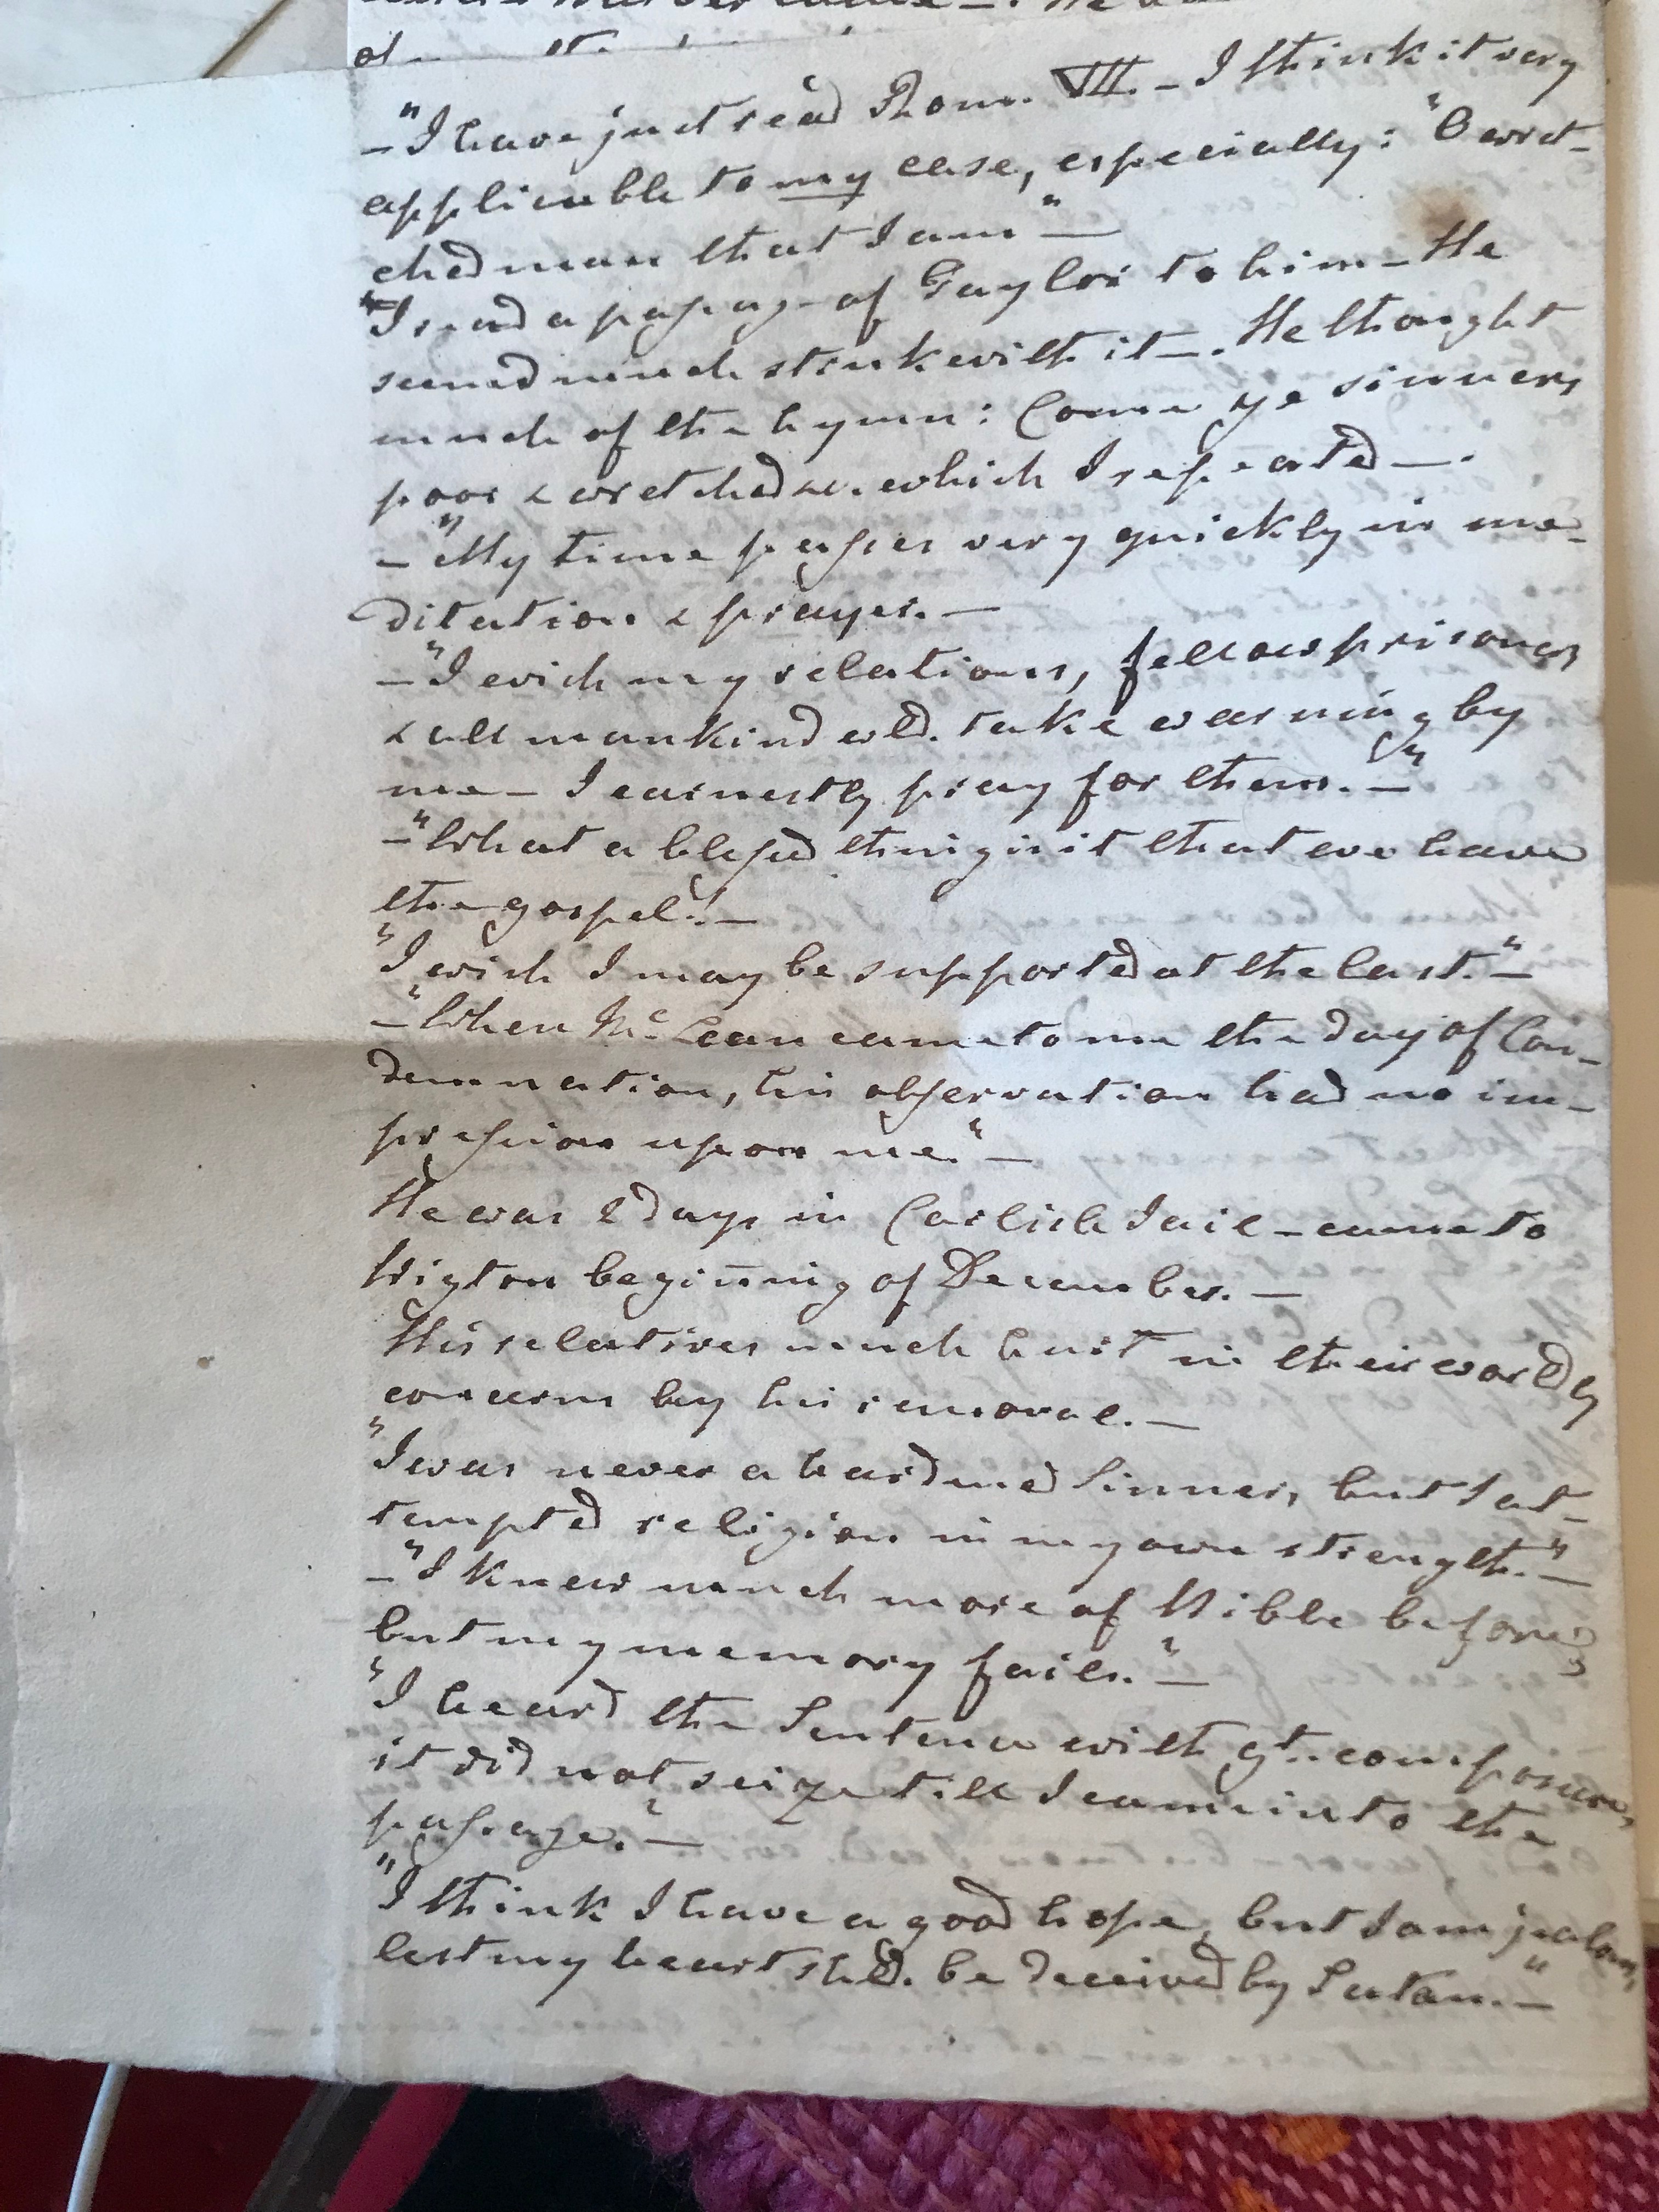 –"I have just read Rom. VII. – I think it very
applicable to my case, especially: "O wret-
ched man that I am" –
"I read a passage of Taylor to him – He
seemed much struck with it –. He thought
much of the hymn: Come ye sinners
poor & wretched &c. which I repeated –.
–"My time passes very quickly in me-
ditation & prayer. –
–"I wish my relations, fellow prisoners
& all mankind wld. take warning by
me – I earnestly pray for them. –"
–"What a blessed thing is it that we have
the gospel! –
"I wish I may be supported at the last." –
–"When Mc. Lean came to me the day of Con-
demnation, his observation had no im-
pression upon me." –
He was 2 days in Carlisle Jail – came to
Wigton begining of December. –
His relatives much hurt in their worldly
concerns by his removal. –
"I was never a hardened Sinner, but I at-
tempted religion in my own strength." –
–"I knew much more of Bible before,
but my memory fails." –
"I heard the Sentence with gt. composure,
it did not seize till I came into the
passage." –
"I think I have a good hope, but I am jealous,
lest my heart shd. be deceived by Satan. –"